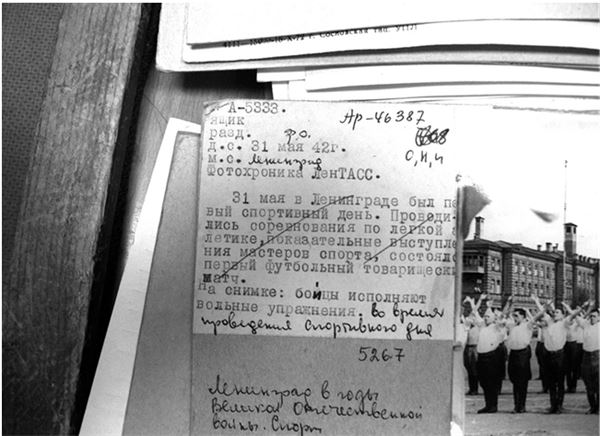 г. Сосновская тип.
А-5333.
Ар-46387
ящик
разд. ф.о.
д.с. 31 мая 42г.
О,И,И
м.с. Ленинград
Фотохроника ЛенТАСС.
31 мая в Ленинграде был пе
вый спортивный день. Проводи-
лись соревнования по легкой а
летике, показательные выступле
ния мастеров спорта, состоялс
первый футбольный товарищески
матч.
На снимке: бойцы исполняют
вольные упражнения. во время
проведения спортивного дня
5267
Ленинград в годы
Великой Отечественной
войны. Спорт